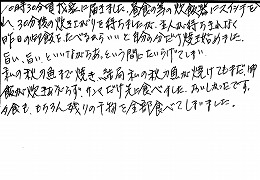 10時30分頃我家に届きました。昼食の為の炊飯器にスイッチを
入れ30分後の炊き上がりを待ちましたが、主人が待ちきれなく
昨日の御飯をたべるからいいと自分の分だけ焼き始めました。
旨い、旨い、といいながらあっという間にたいらげてしまい
私の秋刀魚まで焼き、結局私の秋刀魚が焼けてもまだ御
飯が炊きあがらず、サンマだけ先に食べました。おいしかったです。
夕食も、もちろん残りの干物を全部食べてしまいました。